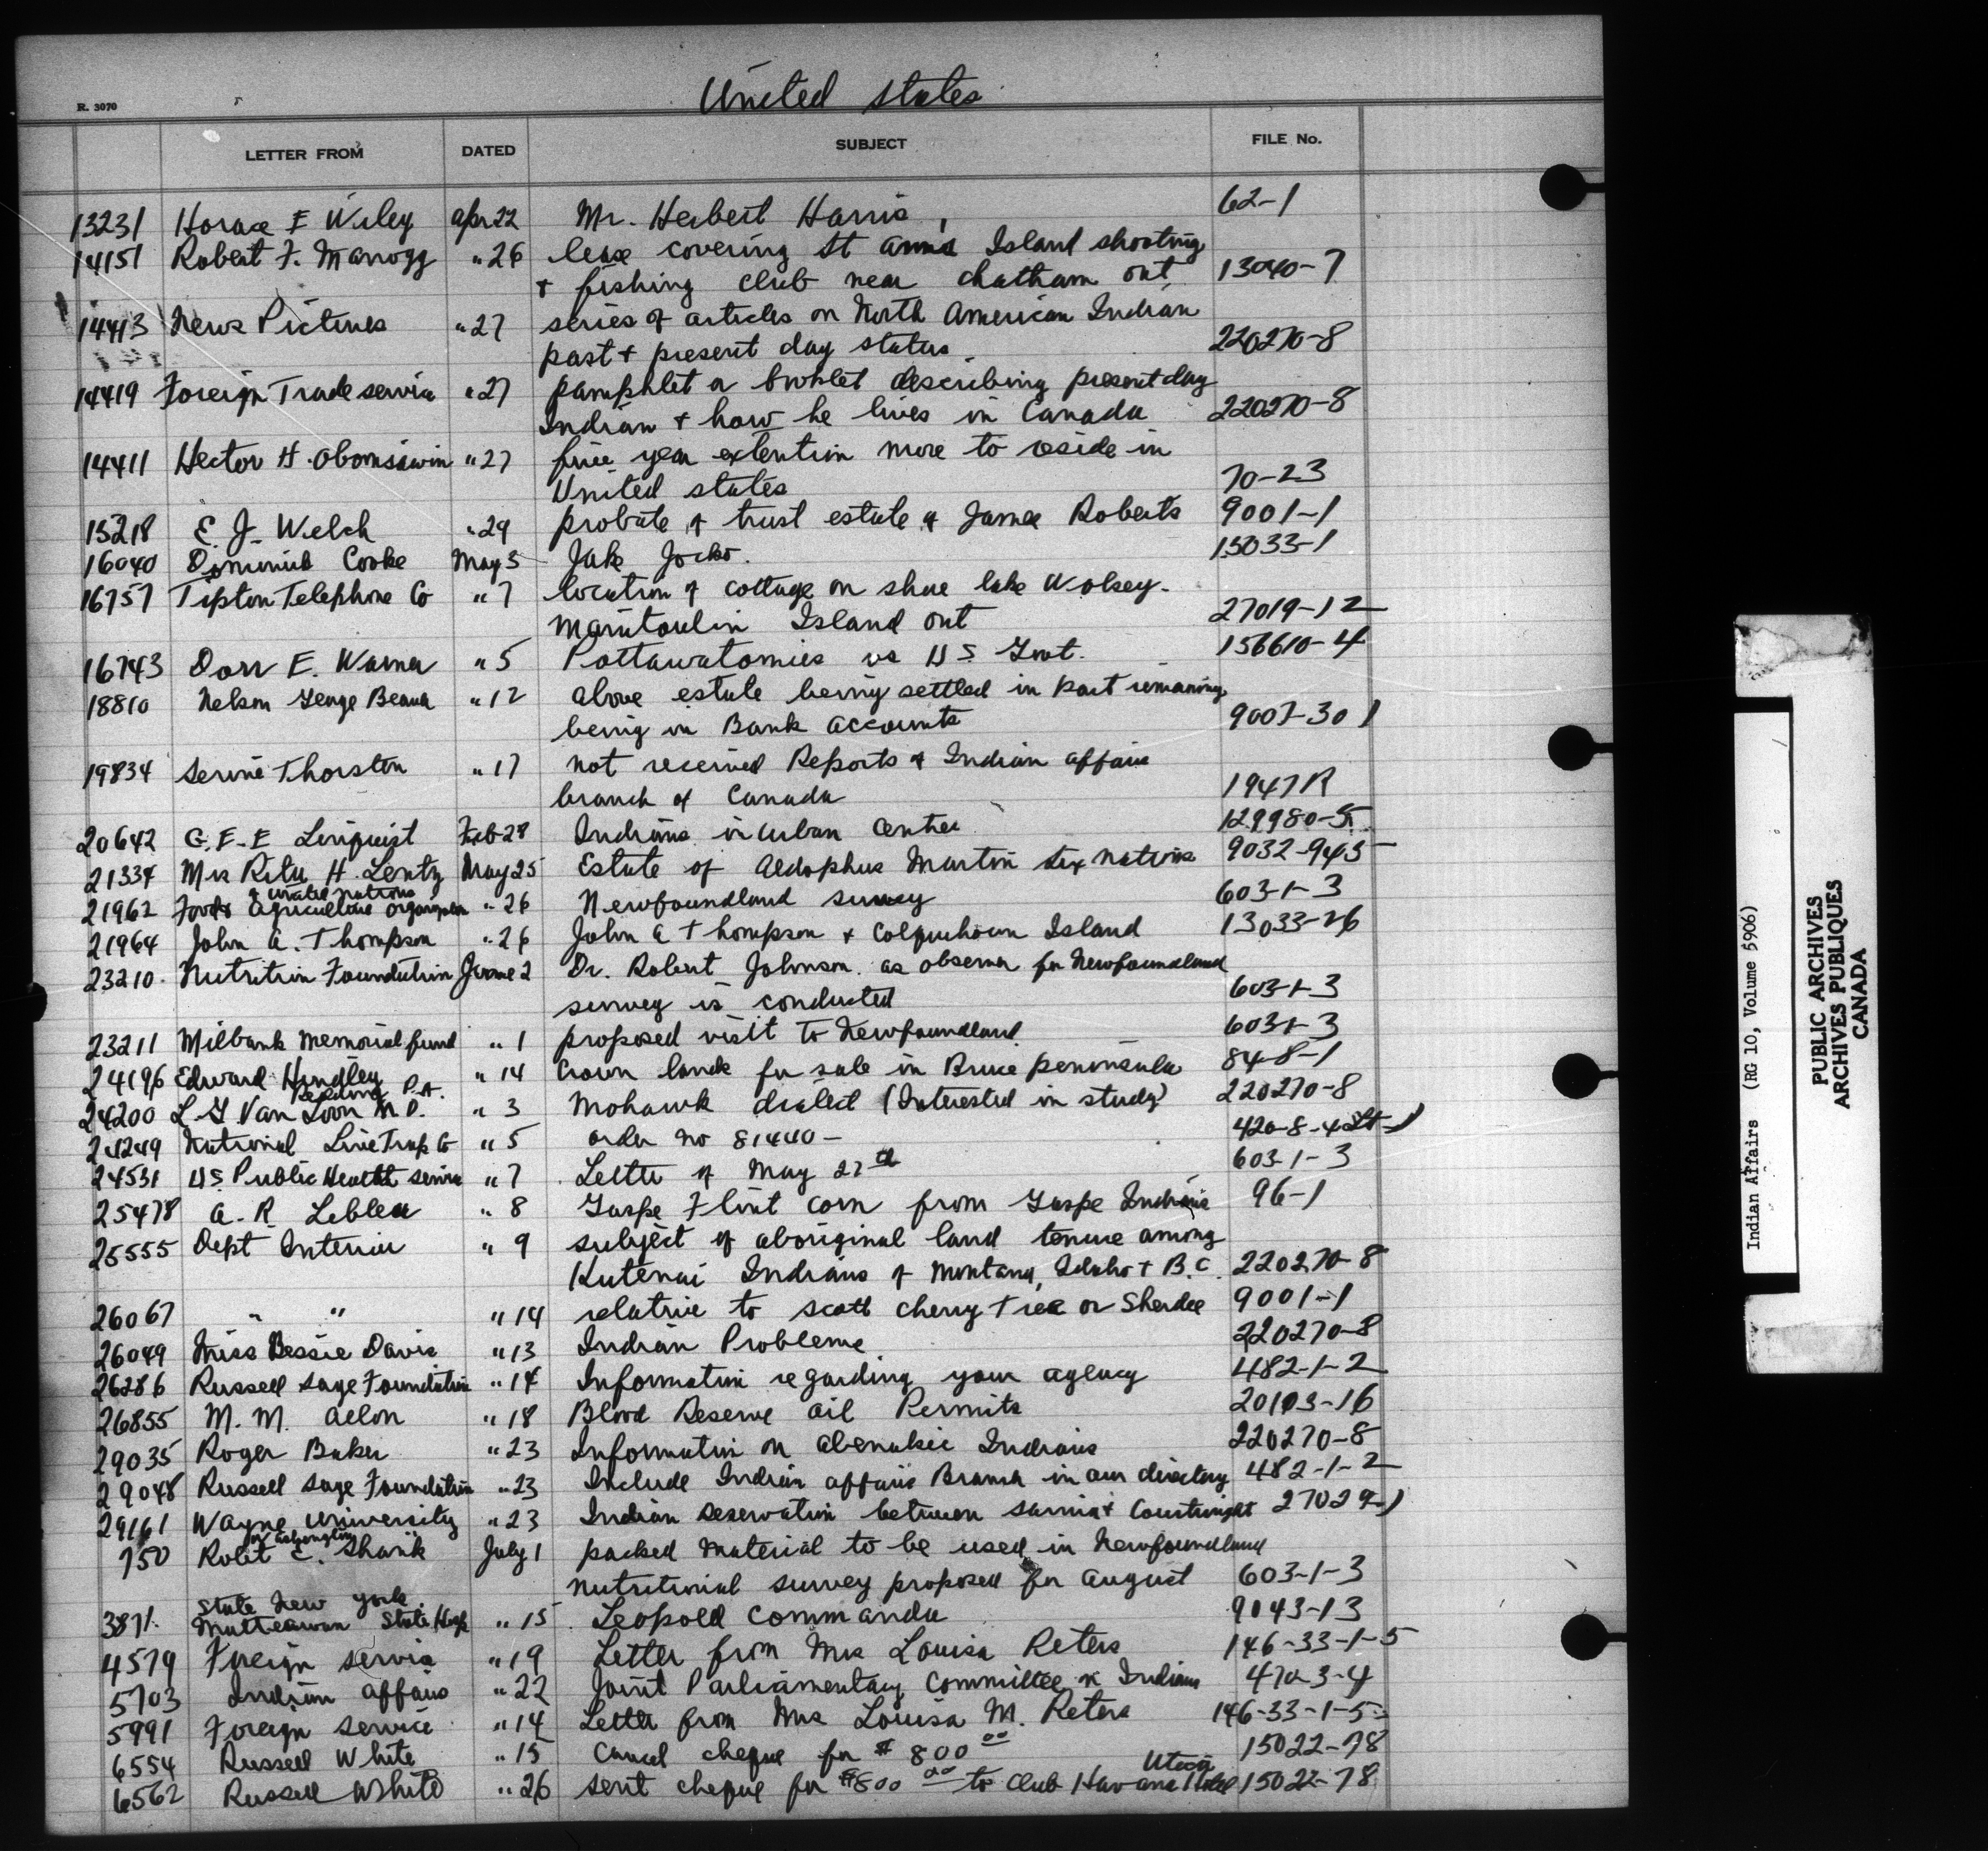 United States
R. 3070
LETTER FROM DATED SUBJECT FILE No.
13231 Horace E Wiley Apr 22 Mr. Herbert Harris 62-1
14151 Robert F. " 26 lease covering St Anns Island shooting
& fishing club near Chatham Ont 13040-7
14413 News Pictures " 27 series of articles on North American Indian
past & present day status 220270-8
14419 Foreign Trade service " 27 pamphlet or booklet describing present day
Indian & how he lives in Canada 220270-8
14411 Hector H. Obomsawin " 27 five year extention more to reside in
United States 70-23
15218 E. J. Welch " 29 probate of trust estate of James Roberts 9001-1
16040 Dominick Cooke May 5 Jake Jocko. 15033-1
16757 Tipton Telephone Co " 7 location of cottage on shore lake Wolsey.
Manitoulin Island Ont 27019-12
16743 Dorr E. Warner " 5 Pottawatomies vs U S. Govt. 156610-4
18810 Nelson George Beaver " 12 above estate being settled in part remaining
being in Bank accounts 9007-30 1
19834 Serine Thorsten " 17 not received Reports of Indian affairs
branch of Canada 1947R
20642 G. E. E Linquist Feb 28 Indians in urban centres 129980-5
21334 Mrs Rita H. Lentz May 25 Estate of Aldophus Martin Six Nations 9032-945
of United Nations
21962 Food & Agriculture organization " 26 Newfoundland survey 603-1-3
21964 John A. Thompson " 26 John A Thompson & Colquhoun Island 13033-26
23210. Nutrition Foundation June 2 Dr. Robert Johnson. as observer for Newfoundland
survey is conducted 603-1-3
23211 Milbank Memorial fund " 1 proposed visit to Newfoundland 603-1-3
24196 Edward Hindley " 14 Crown lands for sale in Bruce peninsula 84-8-1
Reading P.A.
24200 L. G Van Loon M D. " 3 Mohawk dialect (Interested in study) 220270-8
24249 National Live Trap Co " 5 order no 81440- 420-8-4 Lt-1
24531 U S. Public Health service " 7 Letter of May 27th 603-1-3
25478 A. R. Leblea " 8 Gaspe Flint corn from Gaspe Indians 96-1
25555 Dept Interior " 9 subject of aboriginal land tenure among
Kutenai Indians of Montana, Idaho & B.C. 220270-8
26067 " " " 14 relative to Scott Cherry Tree or Sherdee 9001-1
26049 Miss Bessie Davis " 13 Indian Problems 220270-8
26286 Russell Sage Foundation " 14 Information regarding your agency 482-1-2
26855 M. M. " 18 Blood Reserve oil Permits 20103-16
29035 Roger Baker " 23 Information on Abenakie Indians 220270-8
29048 Russell Sage Foundation " 23 Include Indian affairs Branch in our directory 482-1-2
29161 Wayne University " 23 Indian Reservation between Sarnia & Courtright 27029-1
Washington
750 Robt E. Shank July 1 packed material to be used in Newfoundland
nutritional survey proposed for August 603-1-3
State New York.
3871. Matteawan State Hosp " 15 Leopold Commanda 9043-13
4579 Foreign service " 19 Letter from Mrs Louisa Peters 146-33-1-5
5703 Indian affairs " 22 Joint Parliamentary Committee re Indians 470-3-4
5991 Foreign service " 14 Letter from Mrs Louisa M. Peters 146-33-1-5
6554 Russell White " 15 Cancel cheque for $ 800 00 15022-78
6562 Russell White " 26 sent cheque for $800 00 to Club Havana Hotel Utica 15022-78
Indian Affairs (RG 10, Volume 5906)
PUBLIC ARCHIVES
ARCHIVES PUBLIQUES
CANADA